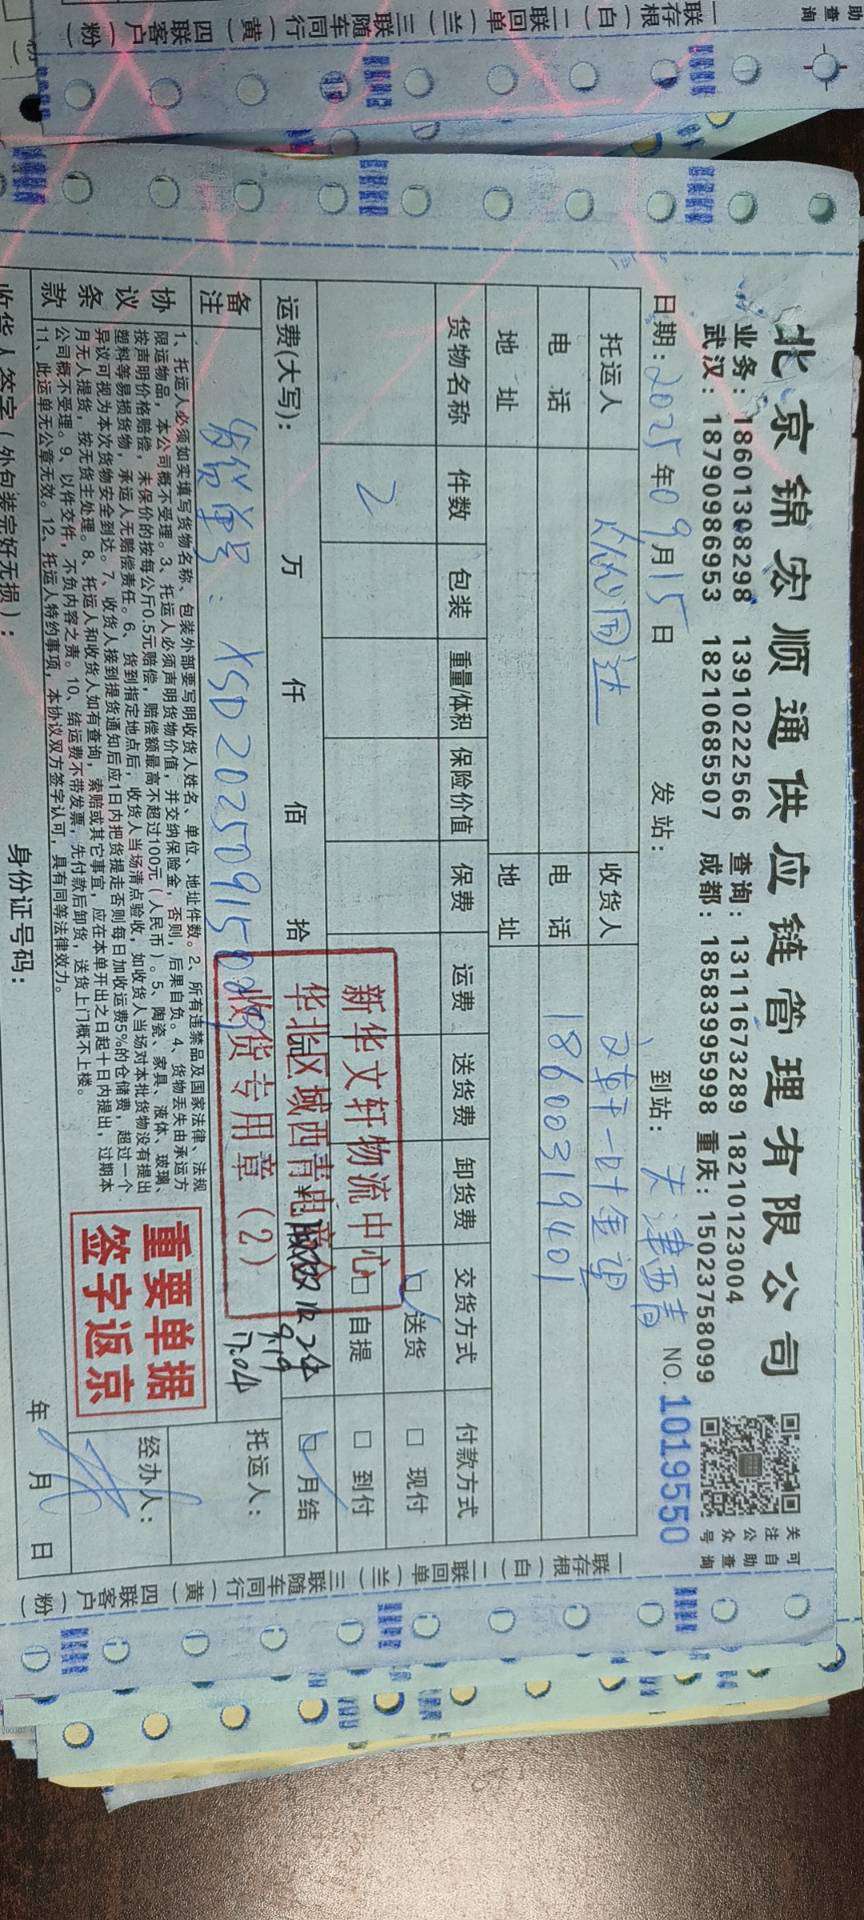 北京锦宏顺通供应链管理有限公司
业务：18601308298 13910222566 查询：13111673289 18210123004
武汉：18790986953 18210685507 成都：18583995998 重庆：15023758099
可自助查询
关注公众号
日期：2025年09月15日 发站： 到站：天津西青 NO.1019550
托运人 收货人
电话 电话 18600319401
地址 地址
货物名称 件数 包装 重量/体积 保险价值 保费 运费 送货费 卸货费 交货方式 付款方式
2 送货 现付
自提 到付
运费(大写)： 万 仟 佰 拾 月结
备注 发货单号：XSD20250915
托运人：
新华文轩物流中心
华北区域西青电商仓
收货专用章（2）
实收2件
9.19
17:04
协议条款
1、托运人必须如实填写货物名称、包装外部要写明收货人姓名、单位、地址件数。2、所有违禁品及国家法律、法规
限运物品，本公司概不受理。3、托运人必须声明货物价值，并交纳保险金，否则，后果自负。4、货物丢失由承运方
按声明价格赔偿，未保价的按每公斤0.5元赔偿，赔偿额最高不超过100元（人民币）。5、陶瓷、家具、液体、玻璃、
塑料等易损货物，承运人无赔偿责任。6、货到指定地点后，收货人当场清点验收，如收货人当场对本批货物没有提出
异议可视为本次货物安全到达。7、收货人接到提货通知后应1日内把货提走否则每日加收运费5%的仓储费，超过一个
月无人提货，按无货主处理。8、托运人和收货人如有查询，索赔或其它事宜，应在本单开出之日起十日内提出，过期本
公司概不受理。9、以件交件，不负内容之责。10、结运费不带发票，先付款后卸货，送货上门概不上楼。
11、此运单无公章无效。12、托运人特约事项，本协议双方签字认可，具有同等法律效力。
重要单据
签字返京
经办人：
收货人签字（外包装完好无损）： 身份证号码： 年 月 日
一联存根（白）二联回单（兰）三联随车同行（黄）四联客户（粉）
一联存根（白）二联回单（兰）三联随车同行（黄）四联客户（粉）
助查询